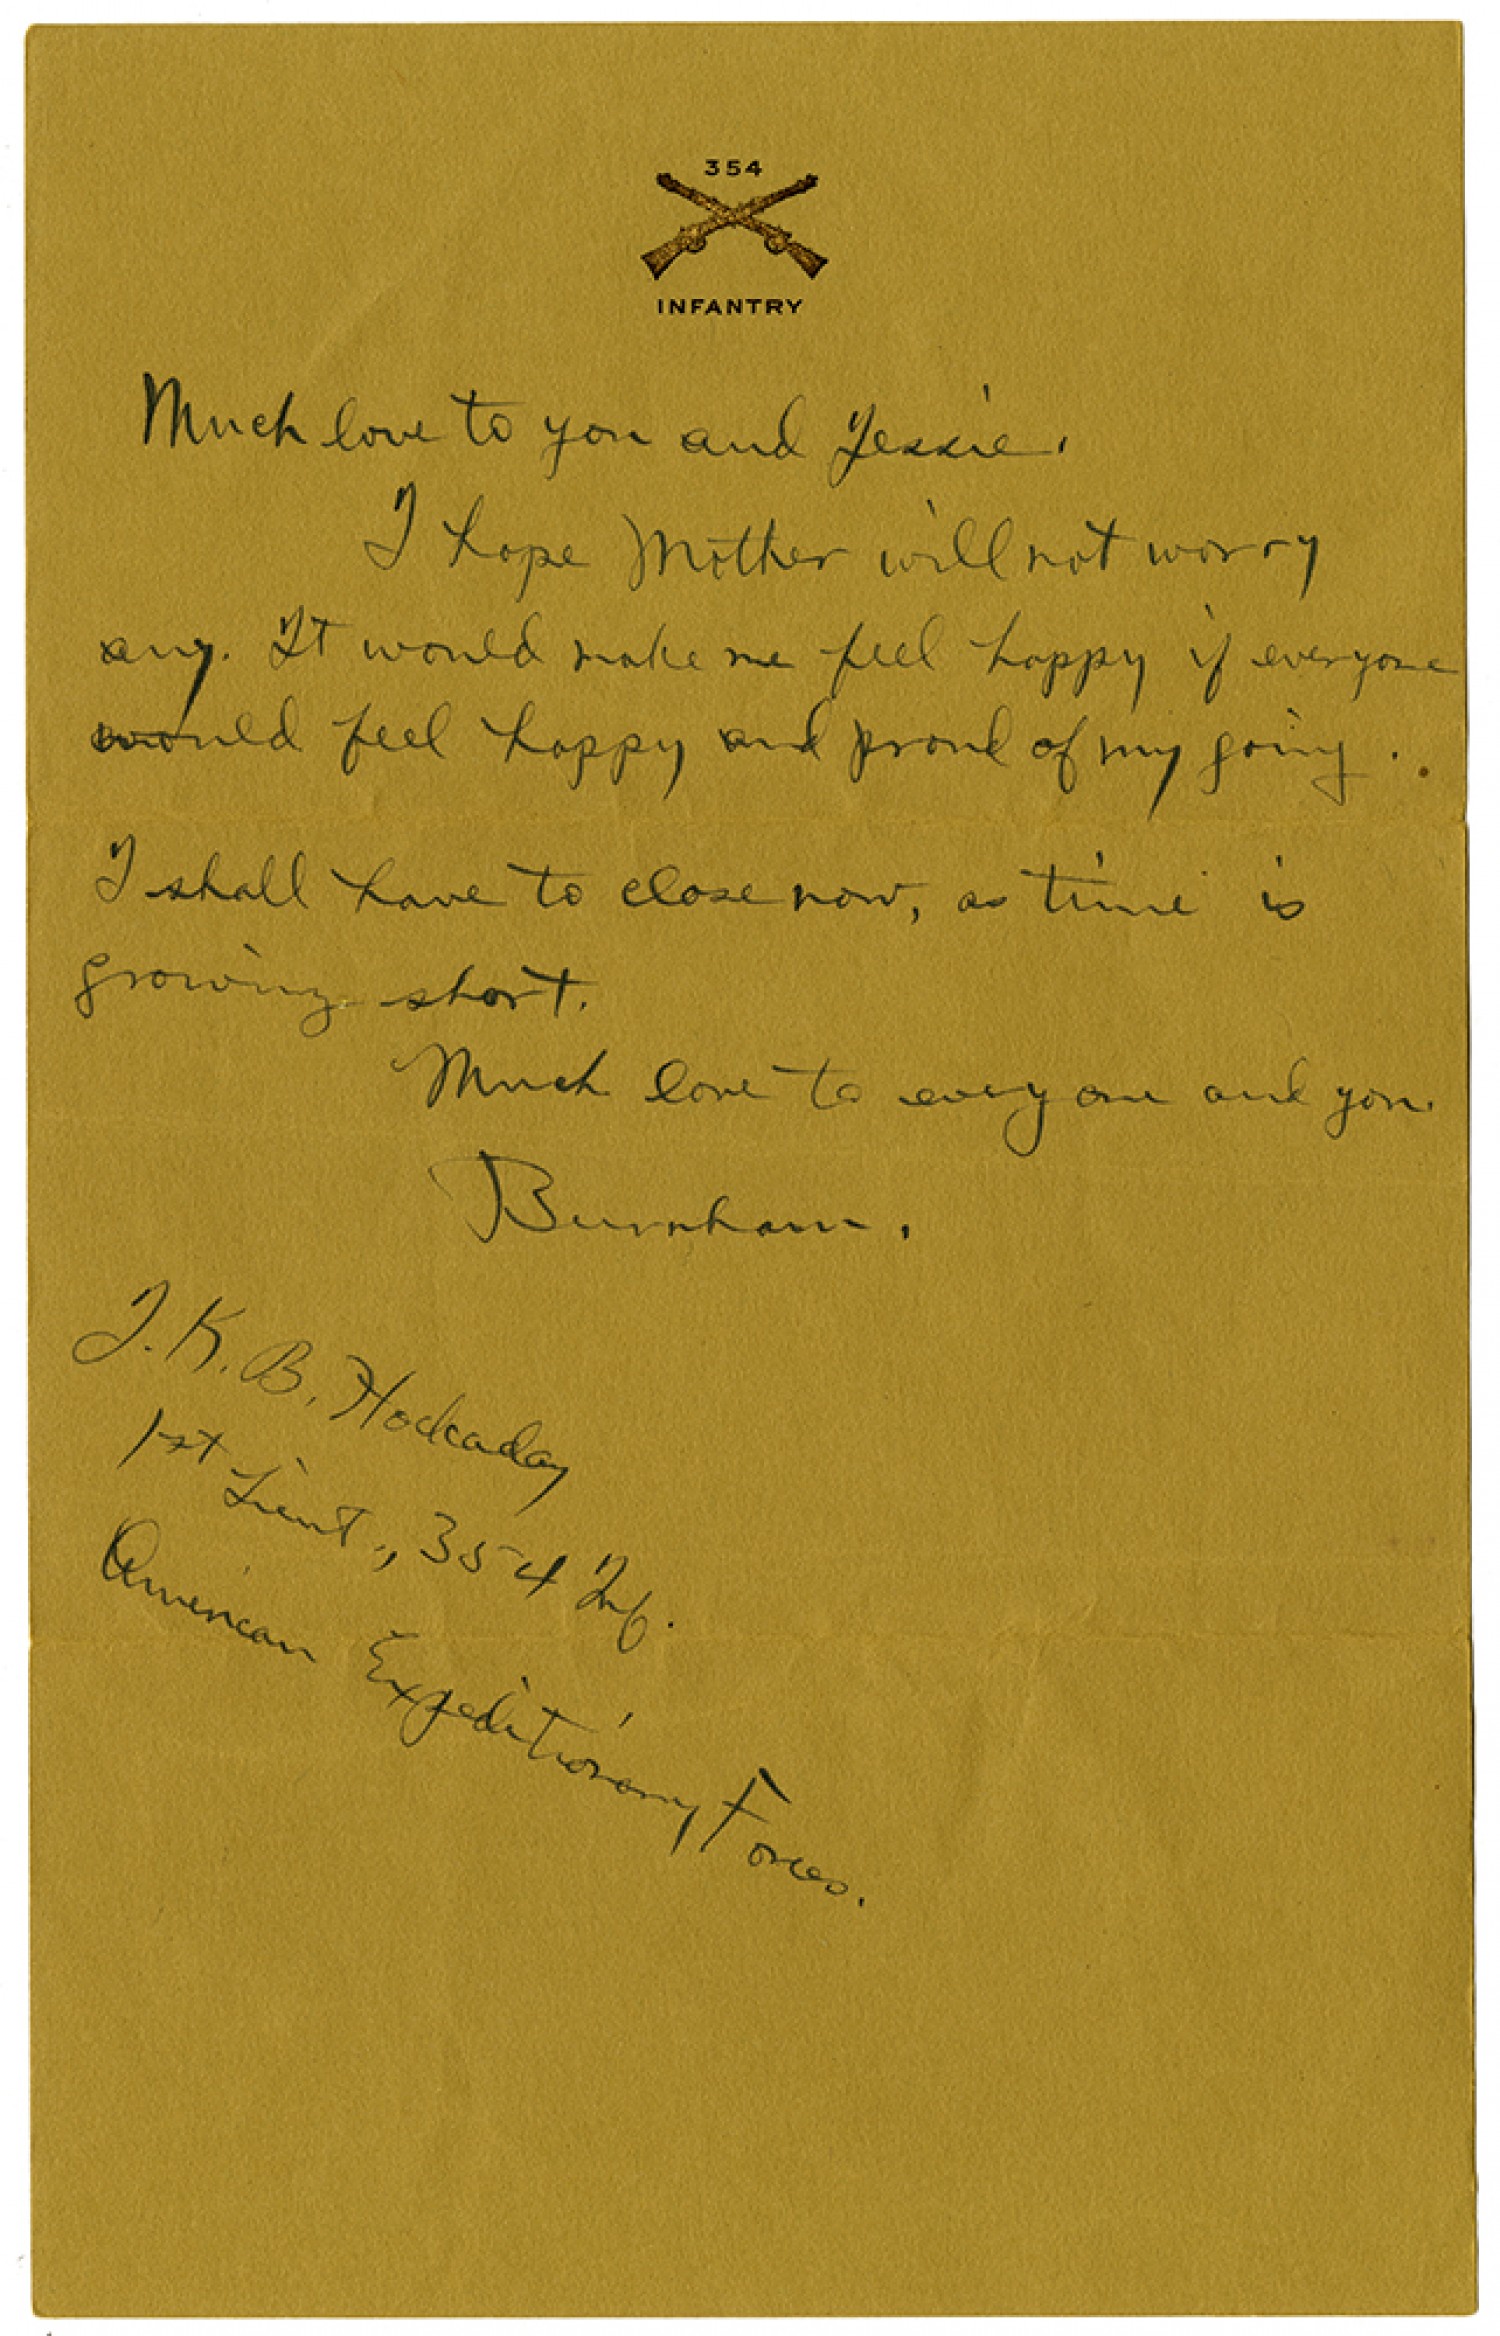 354
INFANTRY
Much love to you and Jessie.
I hope Mother will not worry
any. It would make me feel happy if everyone
would feel happy and proud of my going.
I shall have to close now, as time is
growing short.
Much love to everyone and you.
Burnham.
I. K. B. Hockaday
1st Lieut., 354 Inf.
American Expeditionary Forces.